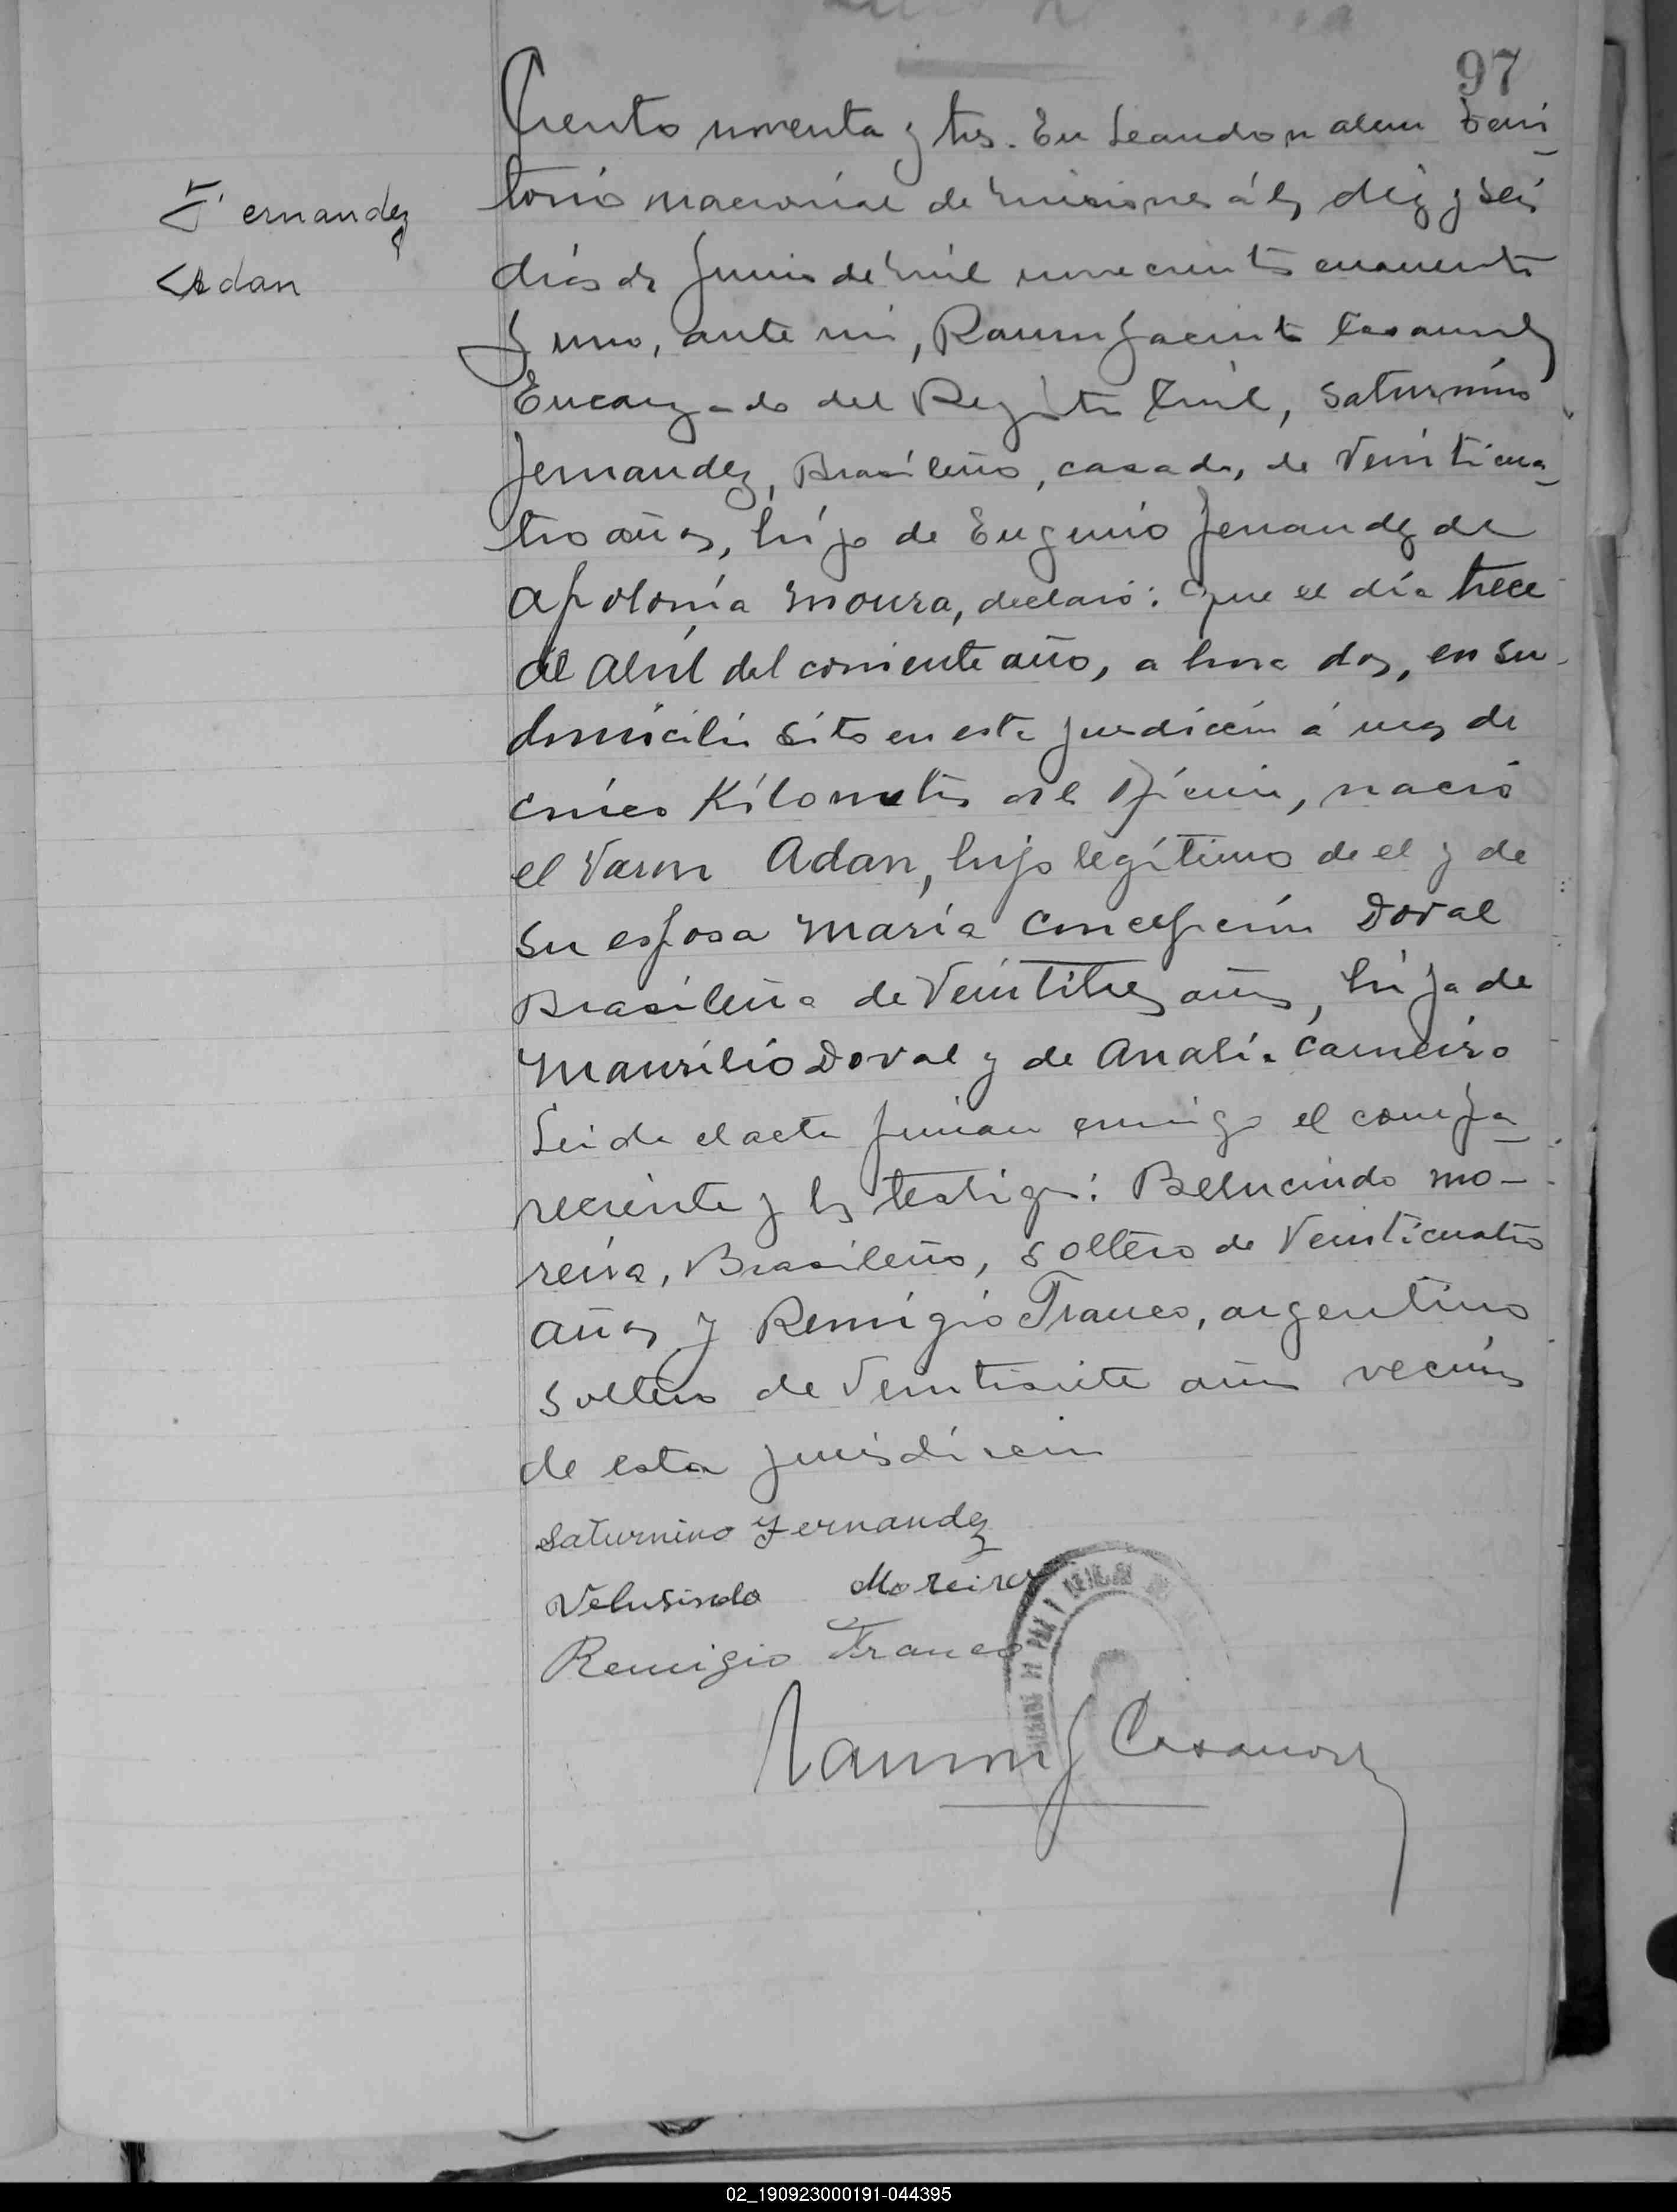 97
Fernandez
Adan
Ciento noventa y tres. En Leandro n alem Terri
torio nacional de Misiones á los diez y seis
dias de Junio de mil novecientos cuarenta
y uno, ante mi, Ramon Jacinto Casanova
Encargado del Registro Civil, Saturnino
Fernandez, Brasileño, casado, de Veinticua
tro años, hijo de Eugenio Fernandez de
Apolonia Moura, declaró: Que el día trece
de Abril del corriente año, a hora dos, en su
domicilio sito en esta jurdiccion á mas de
cinco Kilometros de la Oficina, nació
el Varon Adan, hijo legítimo de el y de
su esposa María Concepción Doval
Brasileña de Veintitres años, hija de
Maurilio Doval y de Analia Carneiro
Leida el acta firman conmigo el compa
reciente y los testigos: Belucindo Mo-
reira, Brasileño, soltero de Veinticuatro
años y Remigio Franco, argentino
soltero de Veintisiete años vecinos
de esta jurisdiccion
Saturnino Fernandez
Velusindo Moreira
Remigio Franco
DE PAZ Y
Ramon J Casanova
02_190923000191-044395